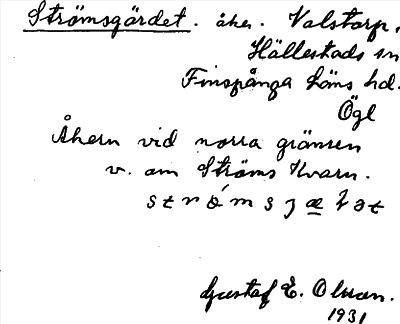 Strömsgärdet. åker. Valstorp,
Hällestads sn
Finspånga läns hd.
Ögl
Åkern vid norra gränsen
v. om Ströms Kvarn.
Gustaf E. Olson.
1931